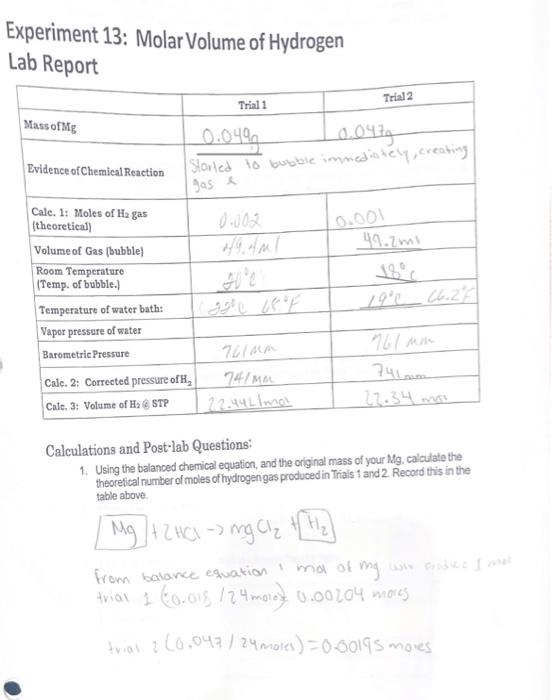 Experiment 13: Molar Volume of Hydrogen
Lab Report
Trial 1 Trial 2
Mass of Mg 0.049g 0.047g
Evidence of Chemical Reaction Started to bubble immediately, creating
gas &
Calc. 1: Moles of H₂ gas
(theoretical) 0.002 0.001
Volume of Gas (bubble) 49.4ml 49.2ml
Room Temperature
(Temp. of bubble.) 20°c 18°c
Temperature of water bath: 19°c 66.2°F
Vapor pressure of water
Barometric Pressure 761mm 761 mm
Calc. 2: Corrected pressure of H₂ 741mm 741 mm
Calc. 3: Volume of H₂ @ STP 22.44L/mol 22.34
Calculations and Post-lab Questions:
1. Using the balanced chemical equation, and the original mass of your Mg, calculate the
theoretical number of moles of hydrogen gas produced in Trials 1 and 2. Record this in the
table above.
Mg + 2HCl -> mgCl₂ + H₂
from balance equation 1 mol of mg 1 mol
trial 1 0.00204 moles
trial 2 (0.047/24moles) = 0.00195 moles